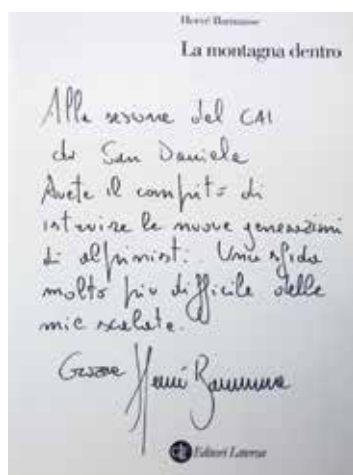 Hervé Barmasse
La montagna dentro
Alla sezione del CAI
di San Daniele
Avete il compito di
istruire le nuove generazioni
di alpinisti. Una sfida
molto più difficile delle
mie scalate.
Grazie Hervé Barmasse
Editori Laterza